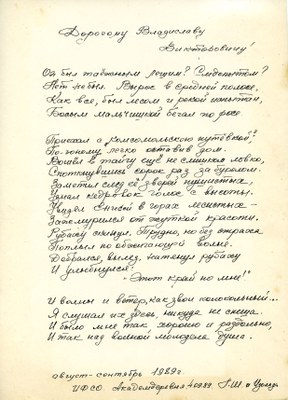 Дорогому Владиславу
Викторовичу!
Он был таёжным лешим? Следопытом?
Нет не был. Вырос в средней полосе,
Как все, был лесом и рекой испытан,
Босым мальчишкой бегал по росе
Приехал "с комсомольскою путёвкой".
По-юному легко оставив дом.
Вошёл в тайгу ещё не слишком ловко,
Споткнувшись сорок раз за бурелом.
Заметил след её зверей пушистых,
Узнал кедровок, белок с высоты.
Увидел Енисей в горах лесистых -
Зажмурился от жуткой красоты.
Рубаху скинул. Трудно, но без страха
Поплыл по обжигающей волне.
Добрался, вылез, натянул рубаху
И улыбнулся:
- Этот край по мне!"
И волны и ветер, как звон колокольный...
Я слушал их здесь, никуда не спеша.
И было мне так хорошо и раздольно,
И так над волной молодела душа.
август-сентябрь 1989г.
Академдеревня